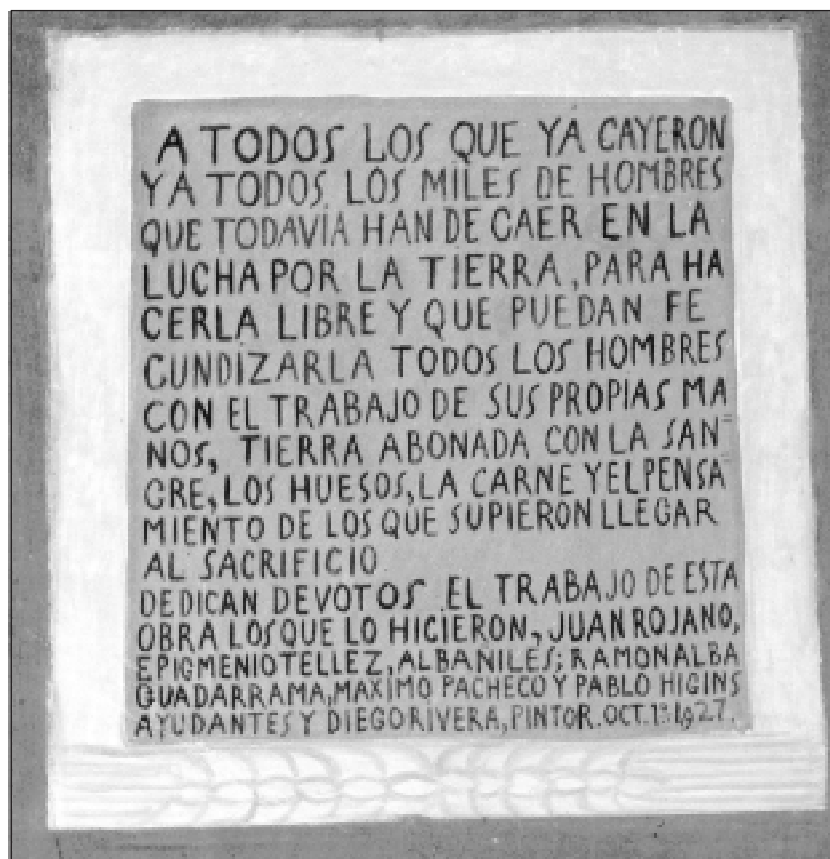 A TODOS LOS QUE YA CAYERON
Y A TODOS LOS MILES DE HOMBRES
QUE TODAVIA HAN DE CAER EN LA
LUCHA POR LA TIERRA, PARA HA
CERLA LIBRE Y QUE PUEDAN FE
CUNDIZARLA TODOS LOS HOMBRES
CON EL TRABAJO DE SUS PROPIAS MA
NOS, TIERRA ABONADA CON LA SAN
GRE, LOS HUESOS, LA CARNE Y EL PENSA
MIENTO DE LOS QUE SUPIERON LLEGAR
AL SACRIFICIO
DEDICAN DEVOTOS EL TRABAJO DE ESTA
OBRA LOS QUE LO HICIERON, JUAN ROJANO,
EPIGMENIO TELLEZ, ALBANILES; RAMON ALBA
GUADARRAMA, MAXIMO PACHECO Y PABLO HIGINS
AYUDANTES Y DIEGO RIVERA, PINTOR. OCT. 1º 1927.